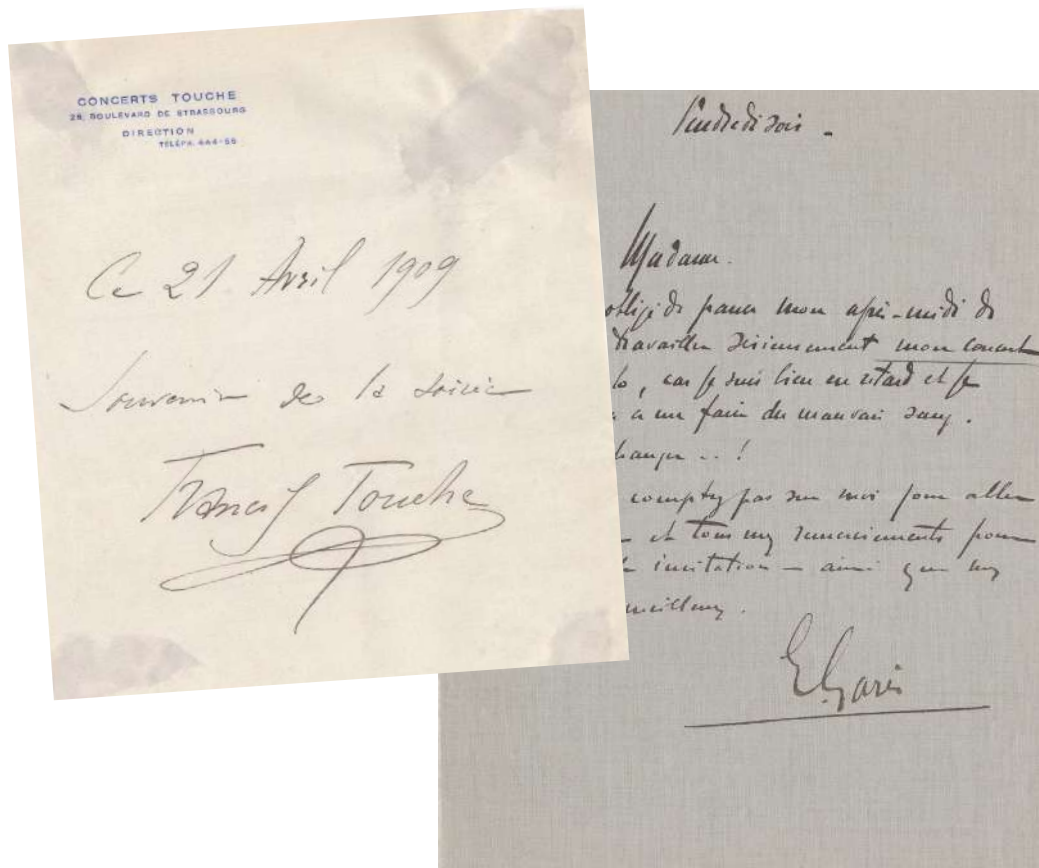 CONCERTS TOUCHE
25, BOULEVARD DE STRASBOURG
DIRECTION
TÉLÉPH. 444-55
Ce 21 Avril 1909
Souvenir de la soirée
Francis Touche
Vendredi soir -
Madame.
obligé de passer mon après-midi de
travailler sérieusement mon concert
, car je suis bien en retard et je
me faire du mauvais sang.
changer .. !
comptez pas sur moi pour aller
et tous mes remerciements pour
invitation - ainsi que mes
meilleurs.